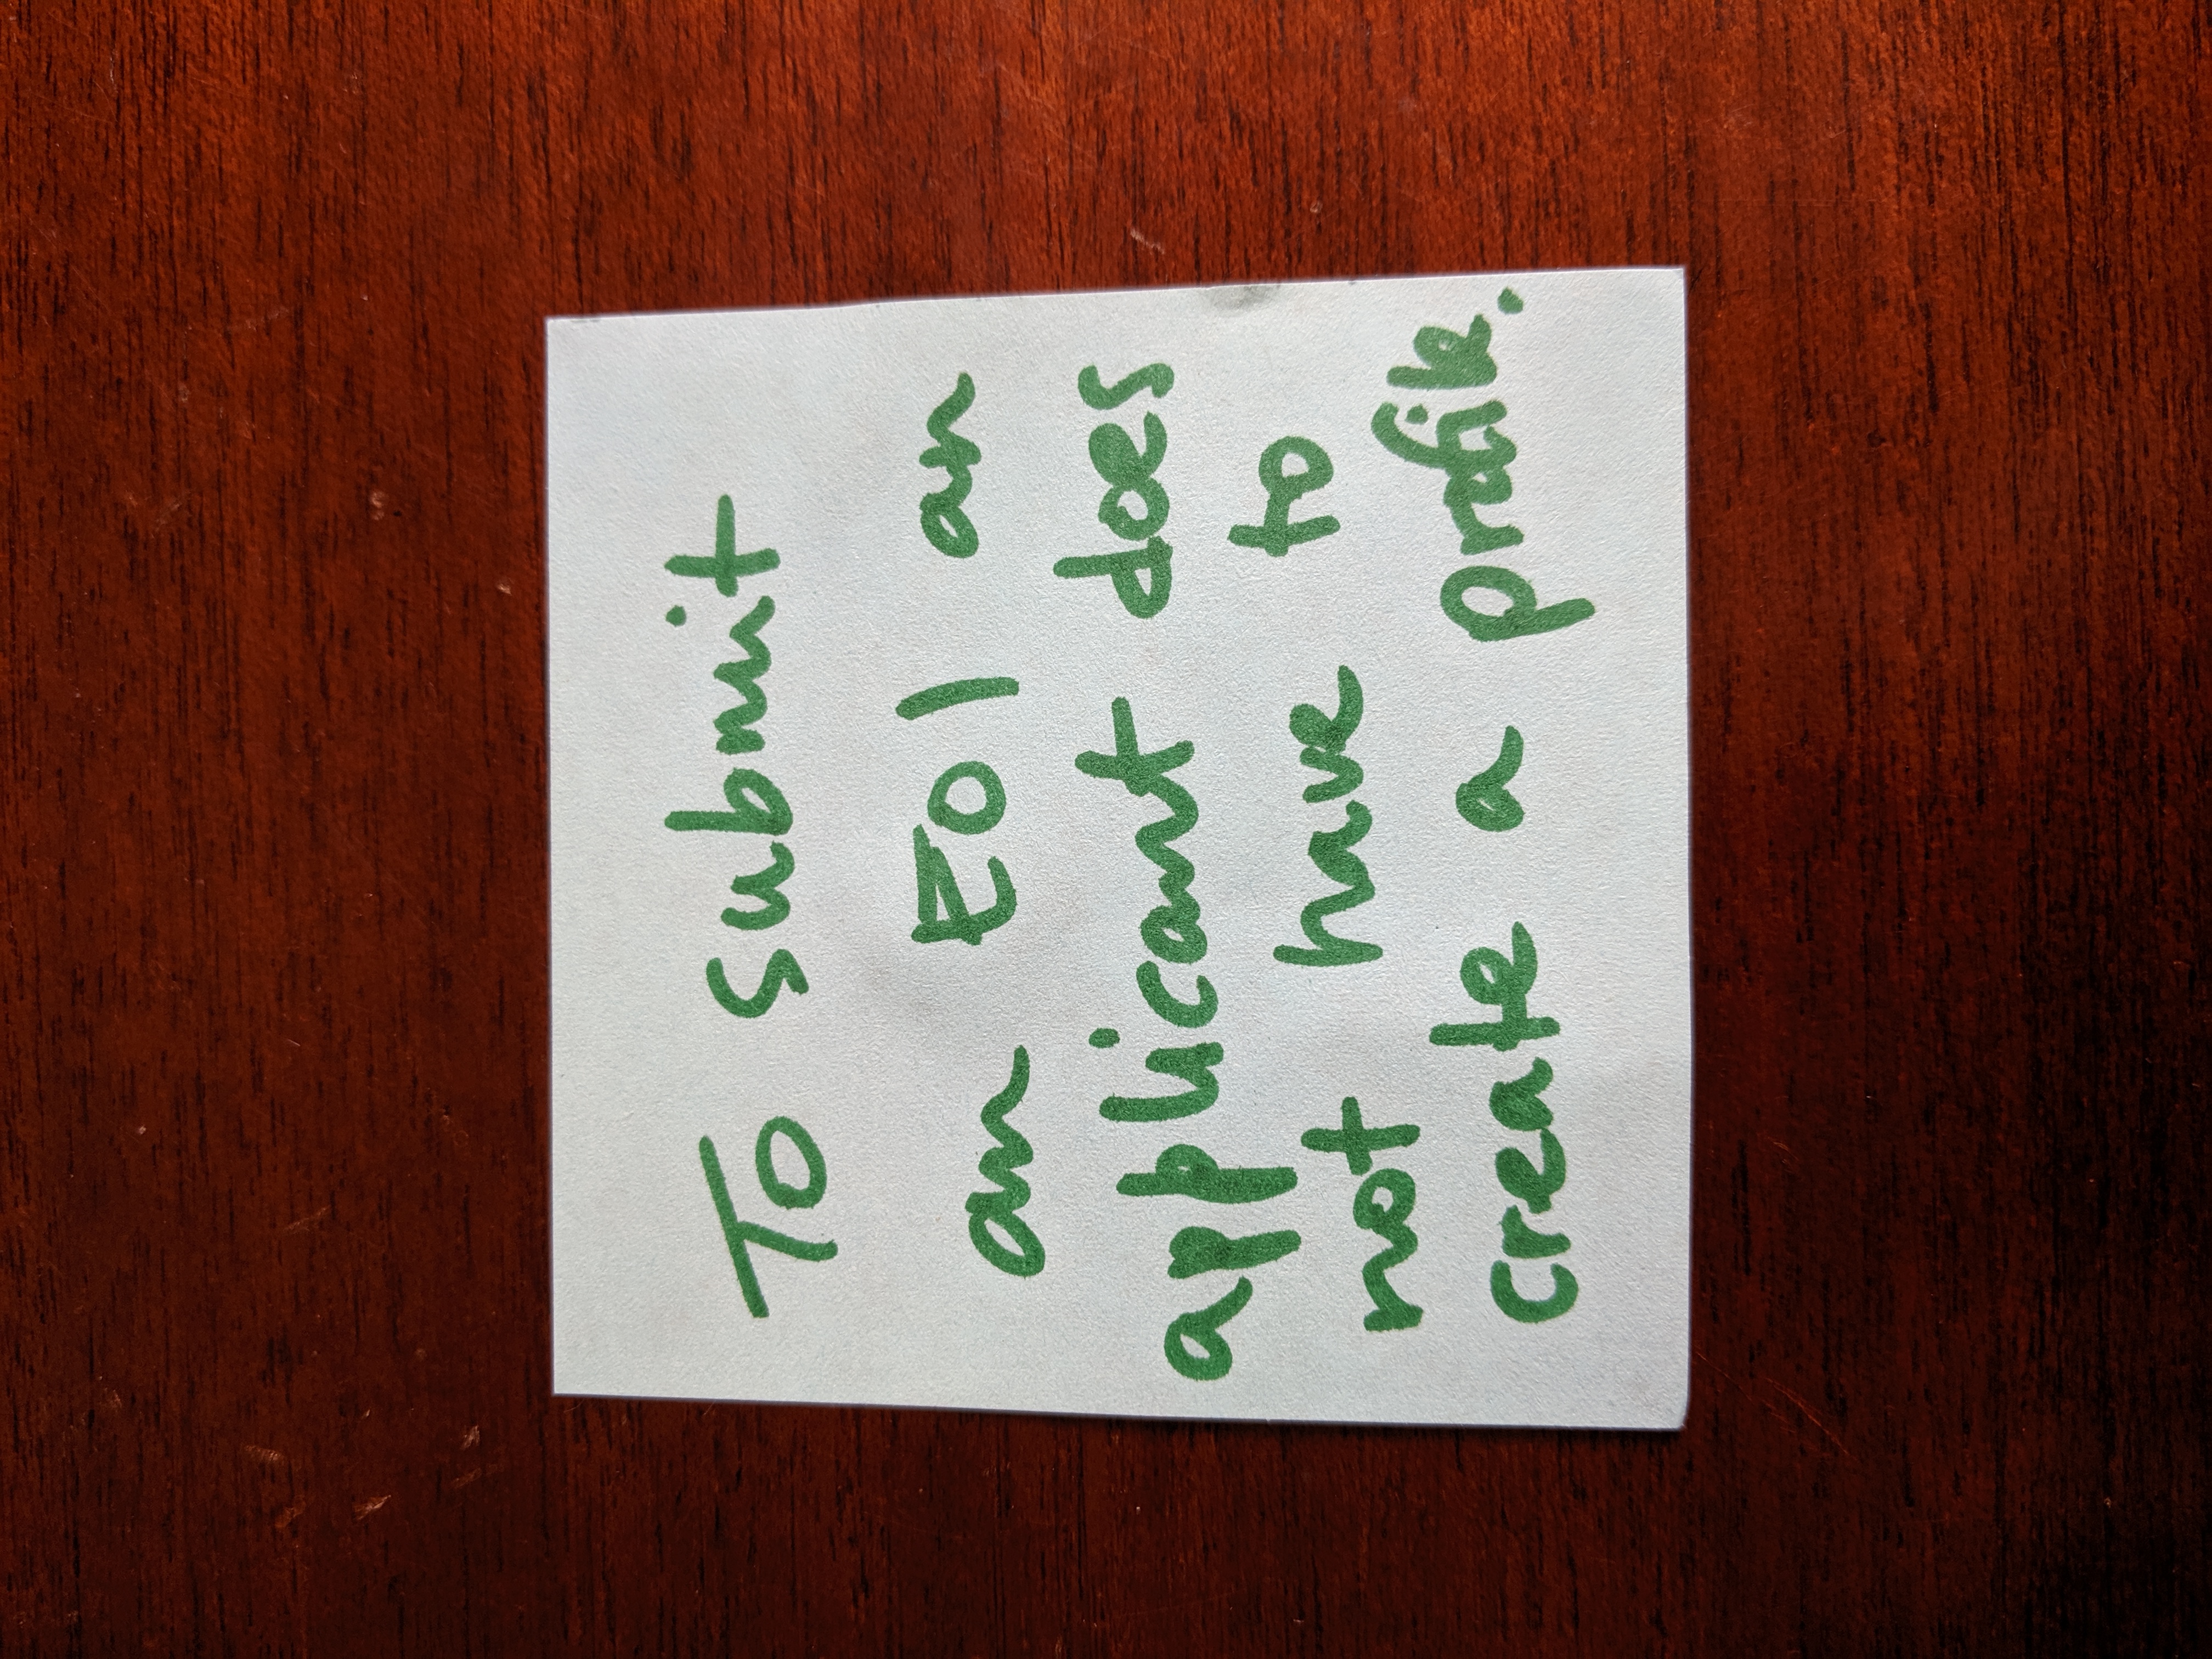 To submit
an EOI an
applicant does
not have to
create a profile.